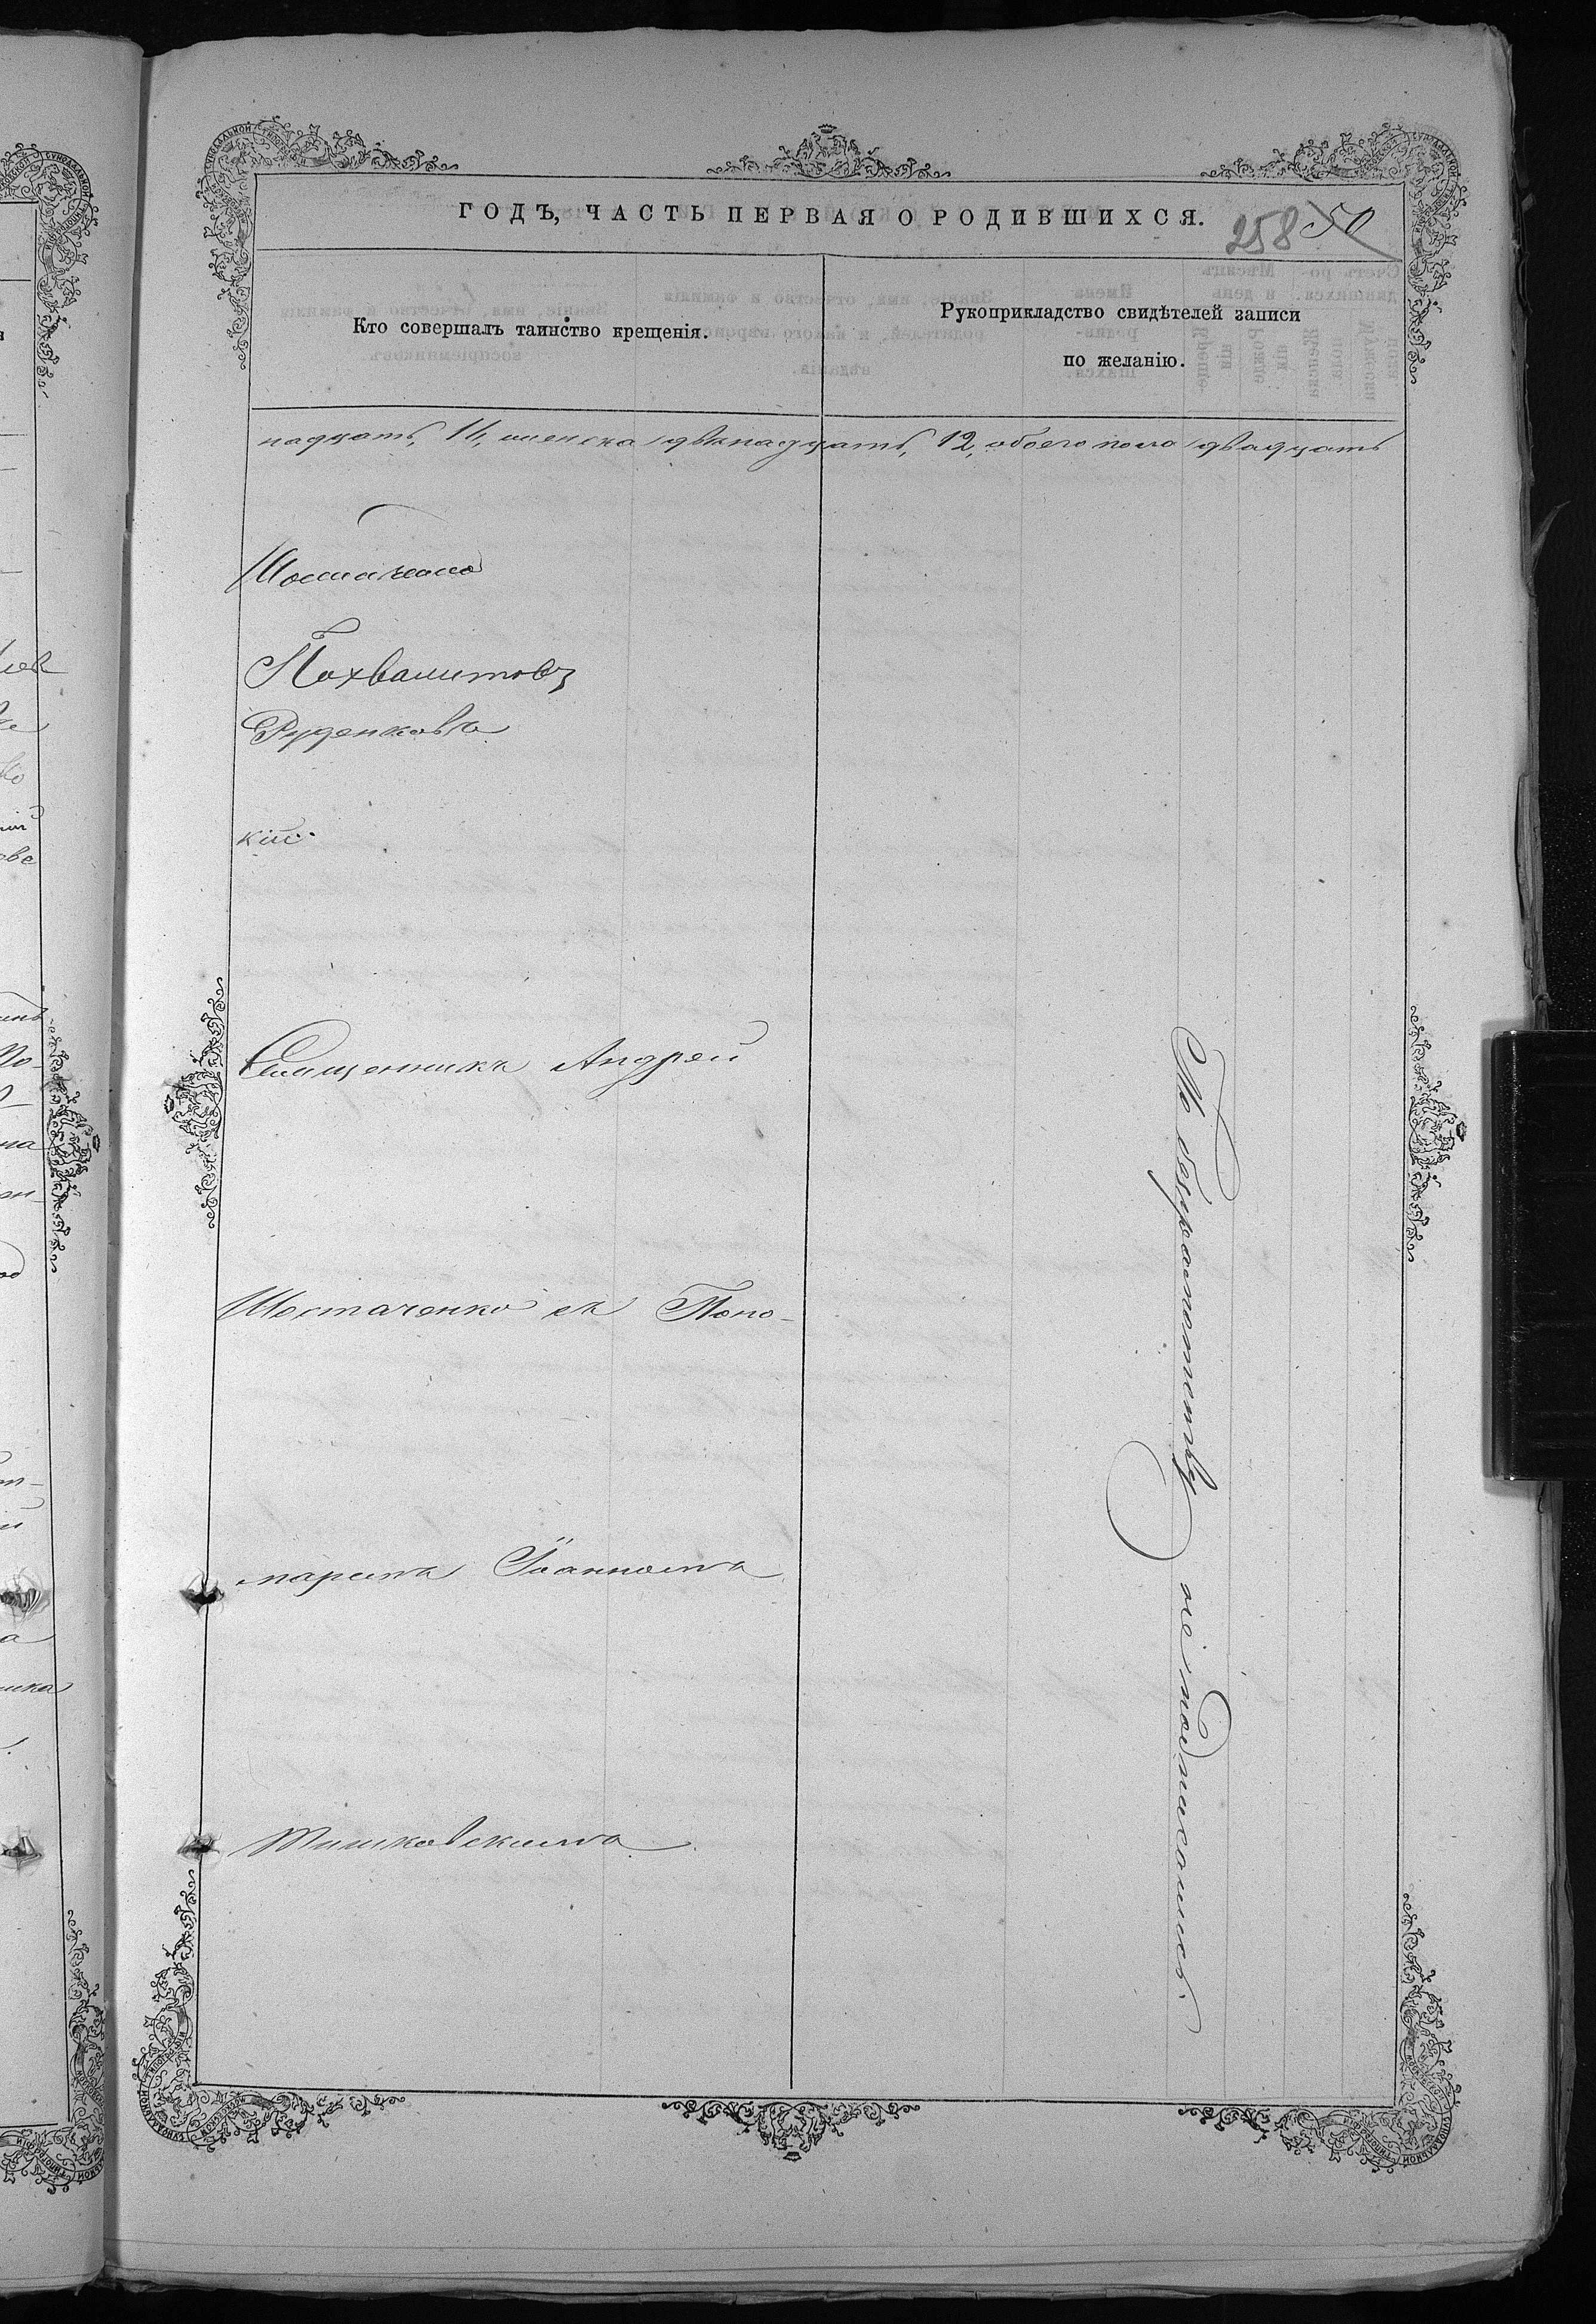 ГОДЪ, ЧАСТЬ ПЕРВАЯ О РОДИВШИХСЯ.
258 50
Кто совершалъ таинство крещенія.
Рукоприкладство свидѣтелей записи
по желанію.
надцать, 11, женска двѣнадцать, 12, обоего пола двадцать
Похвалитовъ
Руденковъ
кій
Священникъ Андрей
Шостаченко съ Поно-
маремъ Іоанномъ
Тишковскимъ
По безграмотству не подписались.